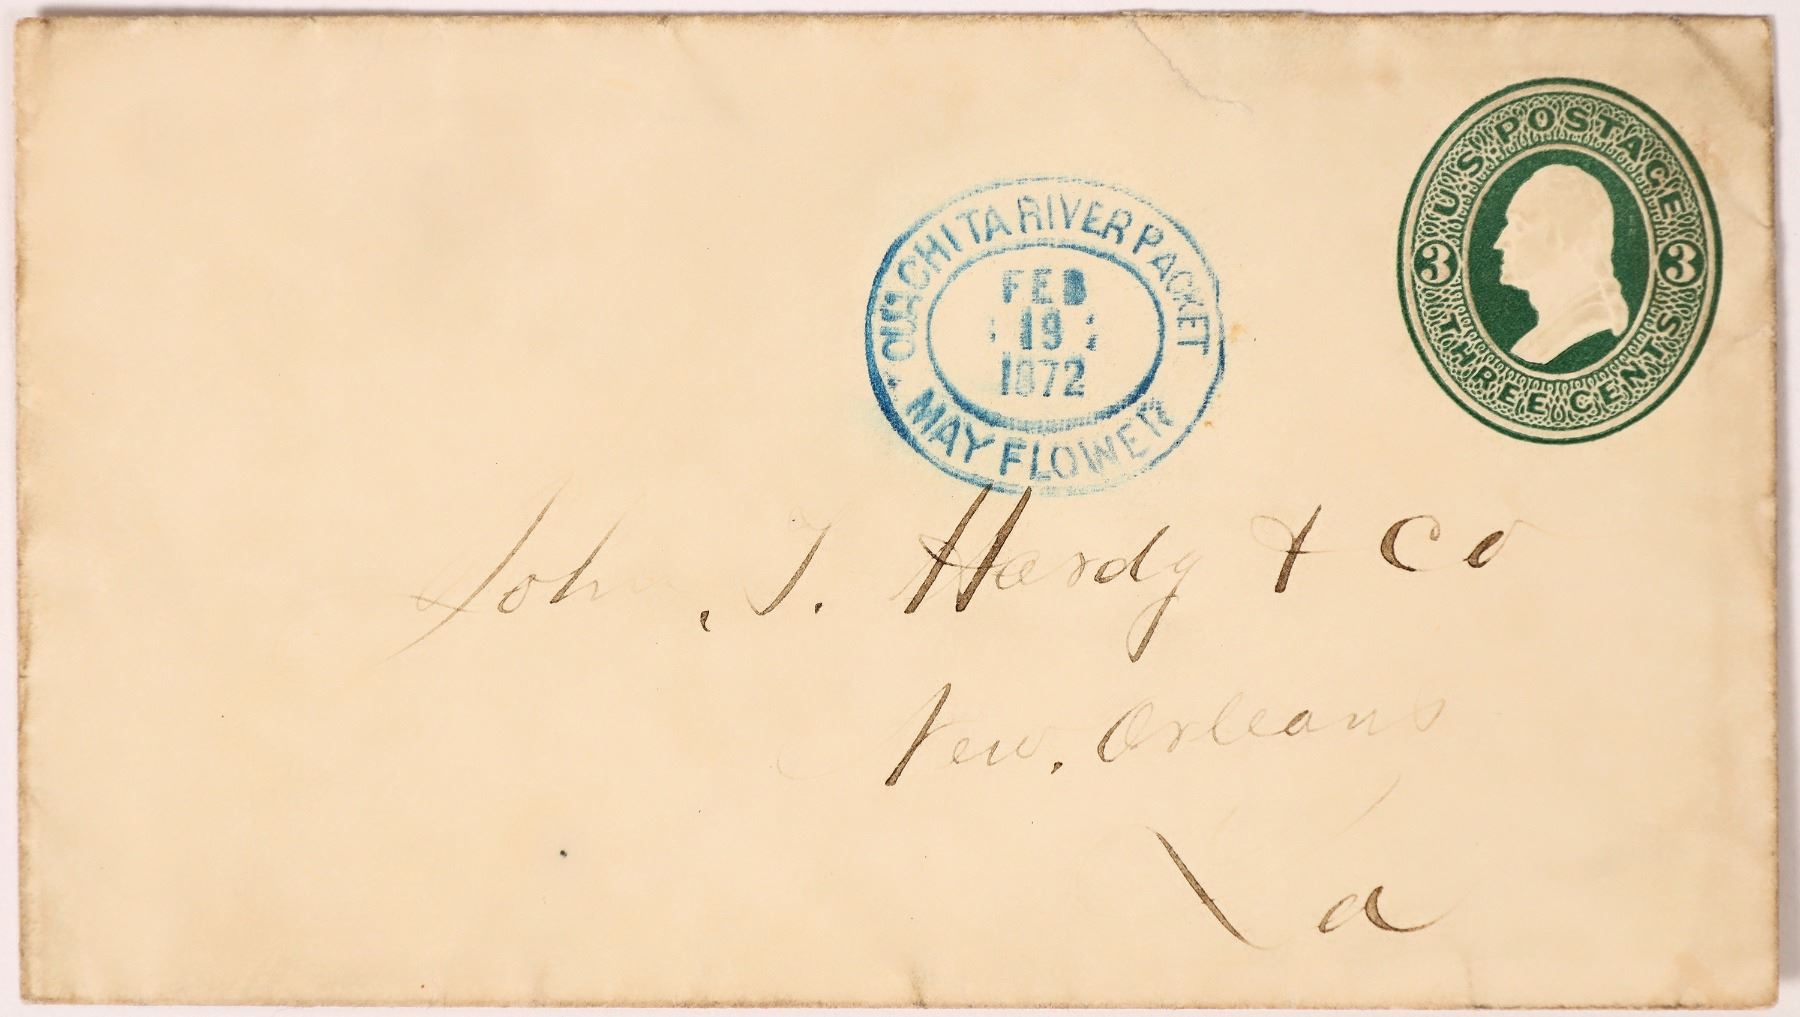 U.S. POSTAGE
3 3
THREE CENTS
OUACHITA RIVER PACKET
FEB
19
1872
MAY FLOWER
John. T. Hardy & Co
New. Orleans
La